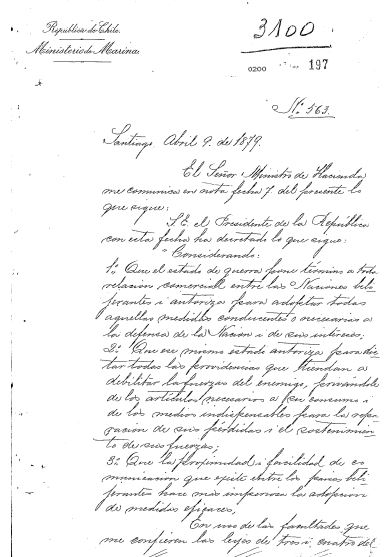 República de Chile.
Ministerio de Marina.
3100
0200 197
Nº 563.
Santiago, Abril 9. de 1879.
El Señor Ministro de Hacienda
me comunica en nota fecha 7 del presente lo
que sigue:
"S.E. el Presidente de la República
con esta fecha ha decretado lo que sigue:
"Considerando:
1º Que el estado de guerra pone término a toda
relacion comercial entre las Naciones beli
jerantes i autoriza para adoptar todas
aquellas medidas conducentes o necesarias a
la defensa de la Nacion i de sus intereses;
2º Que ese mismo estado autoriza para dic
tar todas las providencias que tiendan a
debilitar las fuerzas del enemigo, privandole
de los artículos necesarios a su consumo i
de los medios indispensables para la repa
racion de sus pérdidas i el sostenimien
to de sus fuerzas;
3º Que la proximidad i facilidad de co
municacion que existe entre los paises beli
jerantes hace mas imperiosa la adopcion
de medidas eficaces,
En uso de las facultades que
me confieren las leyes de tres i cuatro del